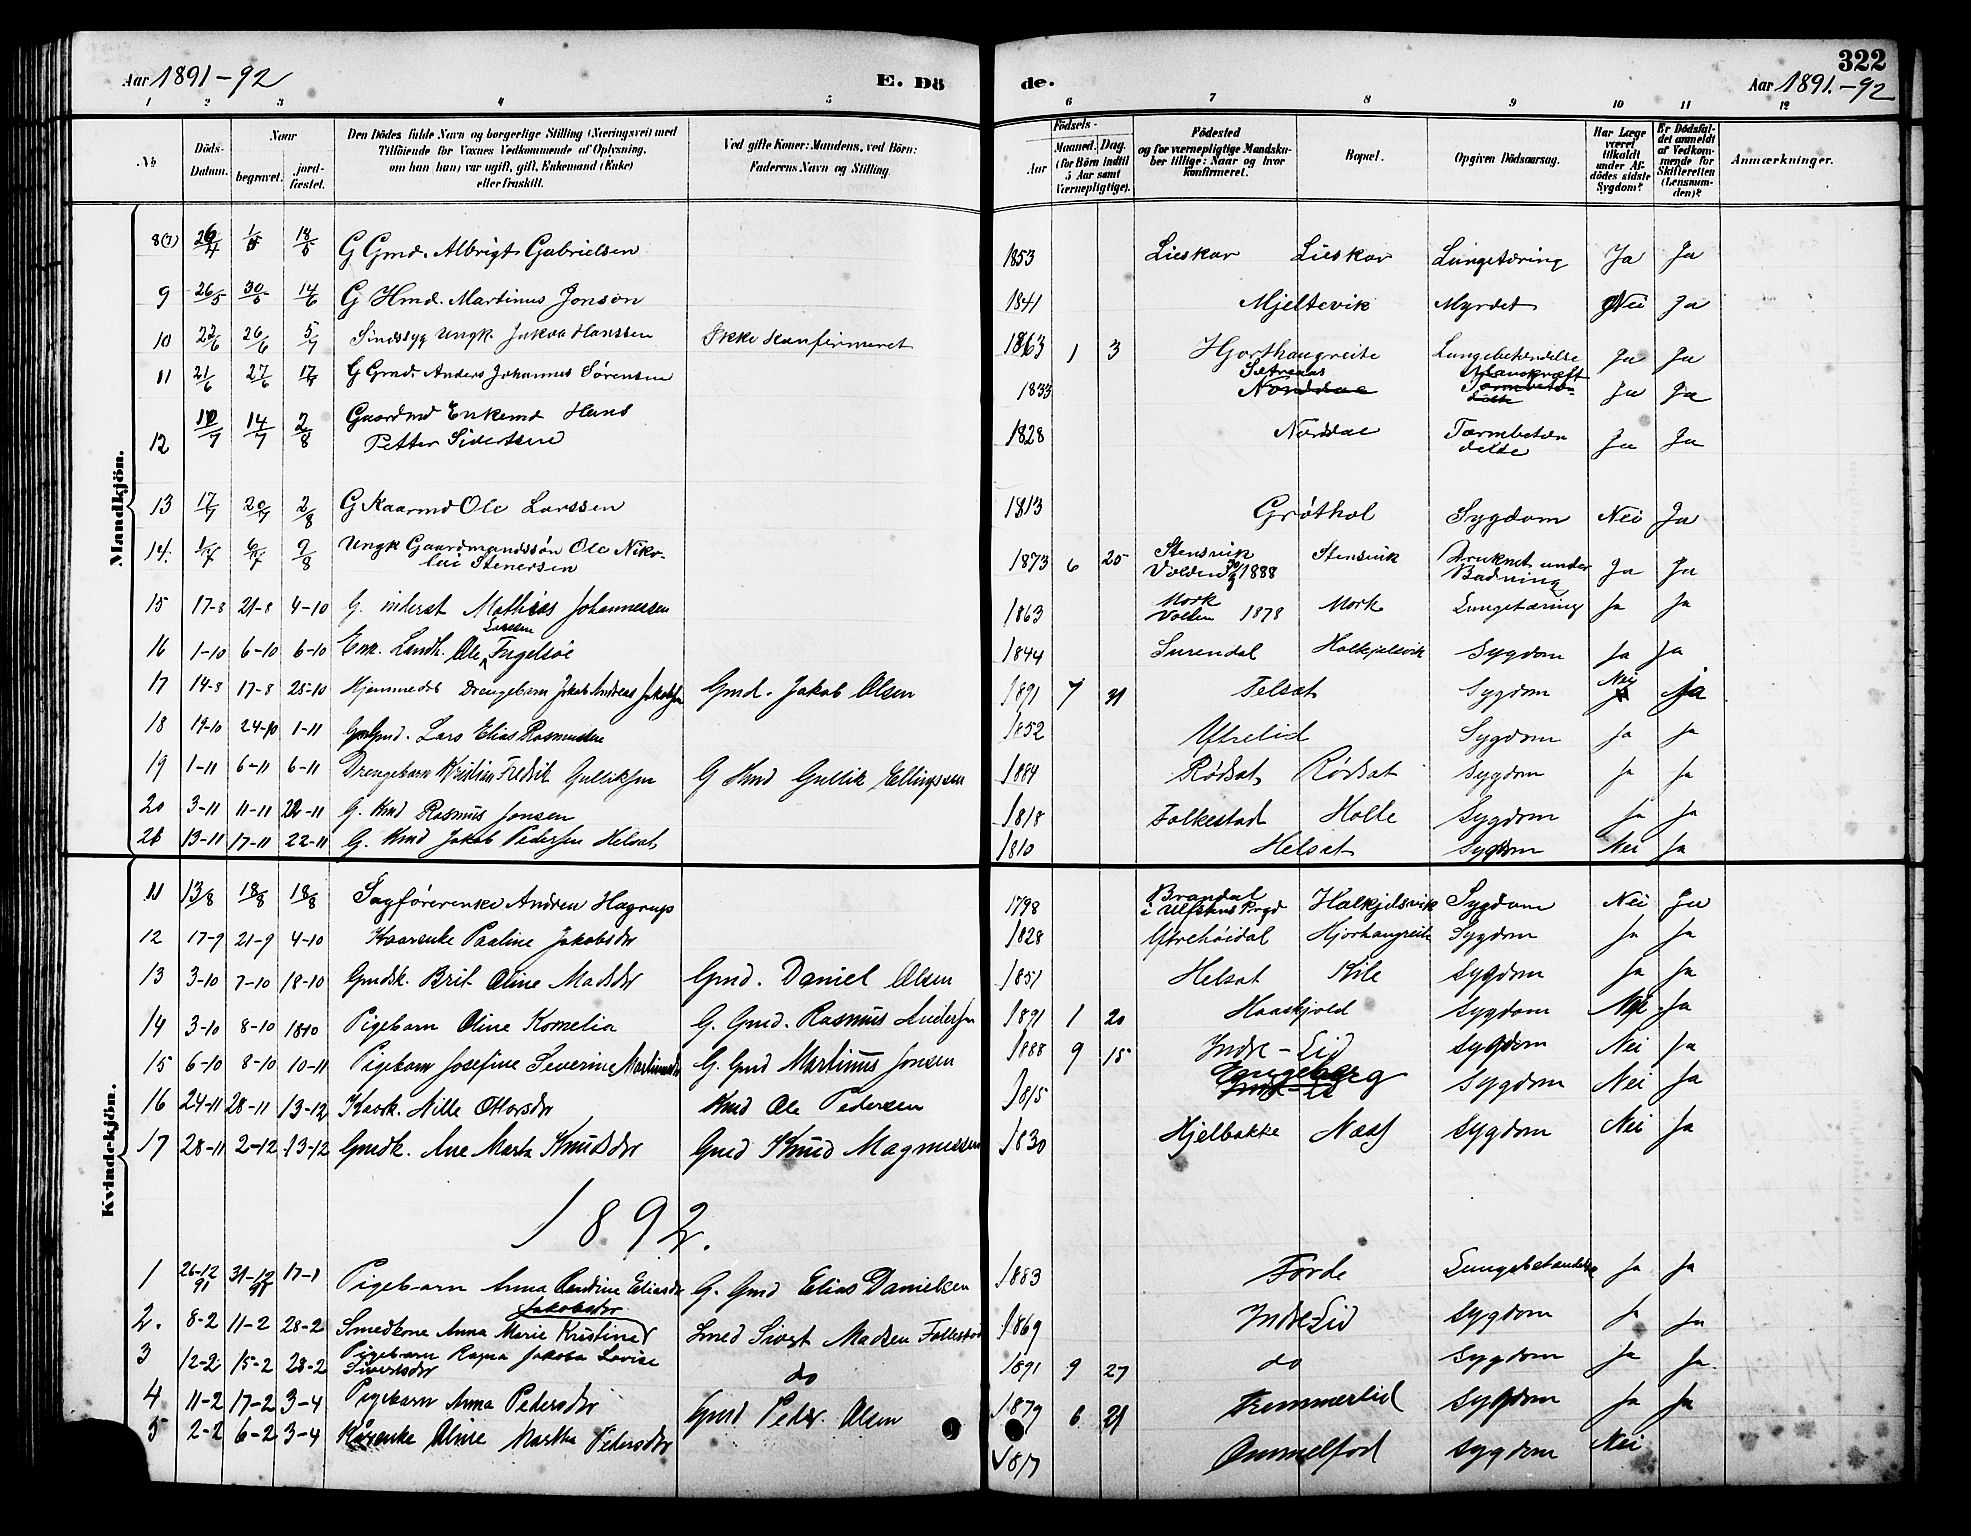 322
Aar 1891-92
E. Dö
de.
Aar 1891.-92
1 2 3 4 5 6 7 8 9 10 11 12
No
Döds-
Datum.
Naar
begravet.
jord-
fæstet.
Den Dödes fulde Navn og borgerlige Stilling (Næringsvei) med
Tilföiende for Voxnes Vedkommende af Oplysning,
om han (hun) var ugift, gift, Enkemand (Enke)
eller fraskilt.
Ved gifte Koner: Mandens, ved Börn:
Faderens Navn og Stilling.
Födsels-
Aar
Maaned. Dag.
(for Börn indtil
5 Aar samt
Værnepligtige).
Födested
og for værnepligtige Mandska-
ber tillige: Naar og hvor
konfirmeret.
Bopæl.
Opgiven Dödsaarsag.
Har Læge
været
tilkaldt
under Af-
dödes sidste
Sygdom?
Er Dödsfal-
det anmeldt
af Vedkom-
mende for
Skifteretten
(Lensman-
den)?
Anmærkninger.
Mandkjön.
8(7) 26/4 18/5 G Gmd. Albrigt Gabrielsen 1853 Lieskar Lieskar Lungetæring Ja Ja
9 26/5 30/5 14/6 G Hmd. Martinus Jonson 1841 Mjeltevik Myrdet Nei Ja
10 22/6 26/6 5/7 Sindssyg Ungk. Jakob Hanssen Ikke Konfirmeret 1863 1 3 Hjorthaugreite Lungebetændelse Ja Ja
11 21/6 27/6 G Gmd. Anders Johannes Sørensen 1833 Sætreaas Norddal Ja Ja
12 14/7 2/8 Gaardmd Enkemd Hans
Petter Sivertsen 1828 Norddal Tarmbetæn
delse Ja Ja
13 17/7 20/7 2/8 G Kaarmd Ole Larssen 1813 Grøthol Sygdom Nei Ja
14. 6/7 2/8 Ungk Gaardmandssøn Ole Niko-
lai Stenersen 1873 6 25 Stensvik
Volden 1888 Stensvik Druknet under
Badning Ja Ja
15 17-8 21-8 4-10 G. inderst Mathias Johannessen 1863 Mork
Volden 1878 Mork Lungetæring Ja Ja
16 1-10 6-10 6-10 Enk. Landh. Ole Larsen Fugelsøe 1844 Surendal Halkjelsvik Sygdom Ja Ja
17 14-8 17-8 25-10 Hjemmedøbt Drengebarn Jakob Andreas Jakobsen Gmd. Jakob Olsen 1891 7 31 Felsæt Sygdom Nei Ja
18 19-10 24-10 1-11 Gmd. Lars Elias Rasmussen 1852 Ytrelid Sygdom Ja Ja
19 1-11 6-11 6-11 Drengebarn Kristian Fredrik Gulliksen G Hmd Gullik Ellingssen 1884 Rødsæt Rødsæt Sygdom Ja Ja
20 3-11 11-11 22-11 G. Kmd Rasmus Jonsen 1818 Folkestad Holle Sygdom Ja Ja
21 13-11 17-11 22-11 G. Kmd Jakob Pedersen Helsæt 1810 Helsæt Sygdom Nei Ja
Kvindekjön.
11 13/8 18/8 18/8 Sagførerenke Andrea Hagrup 1798 Brandal
i Ulfstens Prgd Halkjelsvik Sygdom Nei Ja
12 17-9 21-9 4-10 Kaarenke Pauline Jakobsdr 1828 Ytrehöidal Hjorthaugreite Sygdom Ja Ja
13 3-10 7-10 18-10 Gmdsk. Brit Oline Madsdr Gmd. Daniel Olsen 1851 Helsæt Kile Sygdom Ja Ja
14 3-10 8-10 18-10 Pigebarn Oline Kornelia G. Gmd. Rasmus Andersen 1891 1 20 Haaskjold Sygdom Nei Ja
15 6-10 8-10 10-11 Pigebarn Josefine Severine Martinusdr G. Gmd Martinus Jonsen 1888 9 15 Indre-Eid Sygdom Nei Ja
16 24-11 28-11 13-12 Kaark. Nille Ottorsdr Kmd Ole Pedersen 1815 Engeberg Sygdom Nei Ja
17 28-11 2-12 13-12 Gmdk. Ane Marta Knudsdr Gmd Knud Magnussen 1830 Hjelbakke Næss Sygdom Nei Ja
1892.
1 26-12 91 31-12 91 17-1 Pigebarn Anna Eliasdr G. Gmd Elias Danielsen 1883 Førde Lungebetændelse Ja Ja
2. 8-2 11-2 28-2 Smedkone Anna Marie Kristine Jakobsdr Smed Sivert Madsen Folkestad 1869 Indre Eid Sygdom Ja Ja
3 12-2 15-2 28-2 Pigebarn Ragna Jakoba Lovise
Sivertsdr do 1891 9 27 do Sygdom Ja Ja
4 11-2 17-2 3-4 Pigebarn Anna Pedersdr Gmd Peder Olsen 1879 6 21 Remmerlid Sygdom Ja Ja
5 2-2 6-2 3-4 Kaarenke Oline Martha Pedersdr 1817 Ommelfod Sygdom Nei